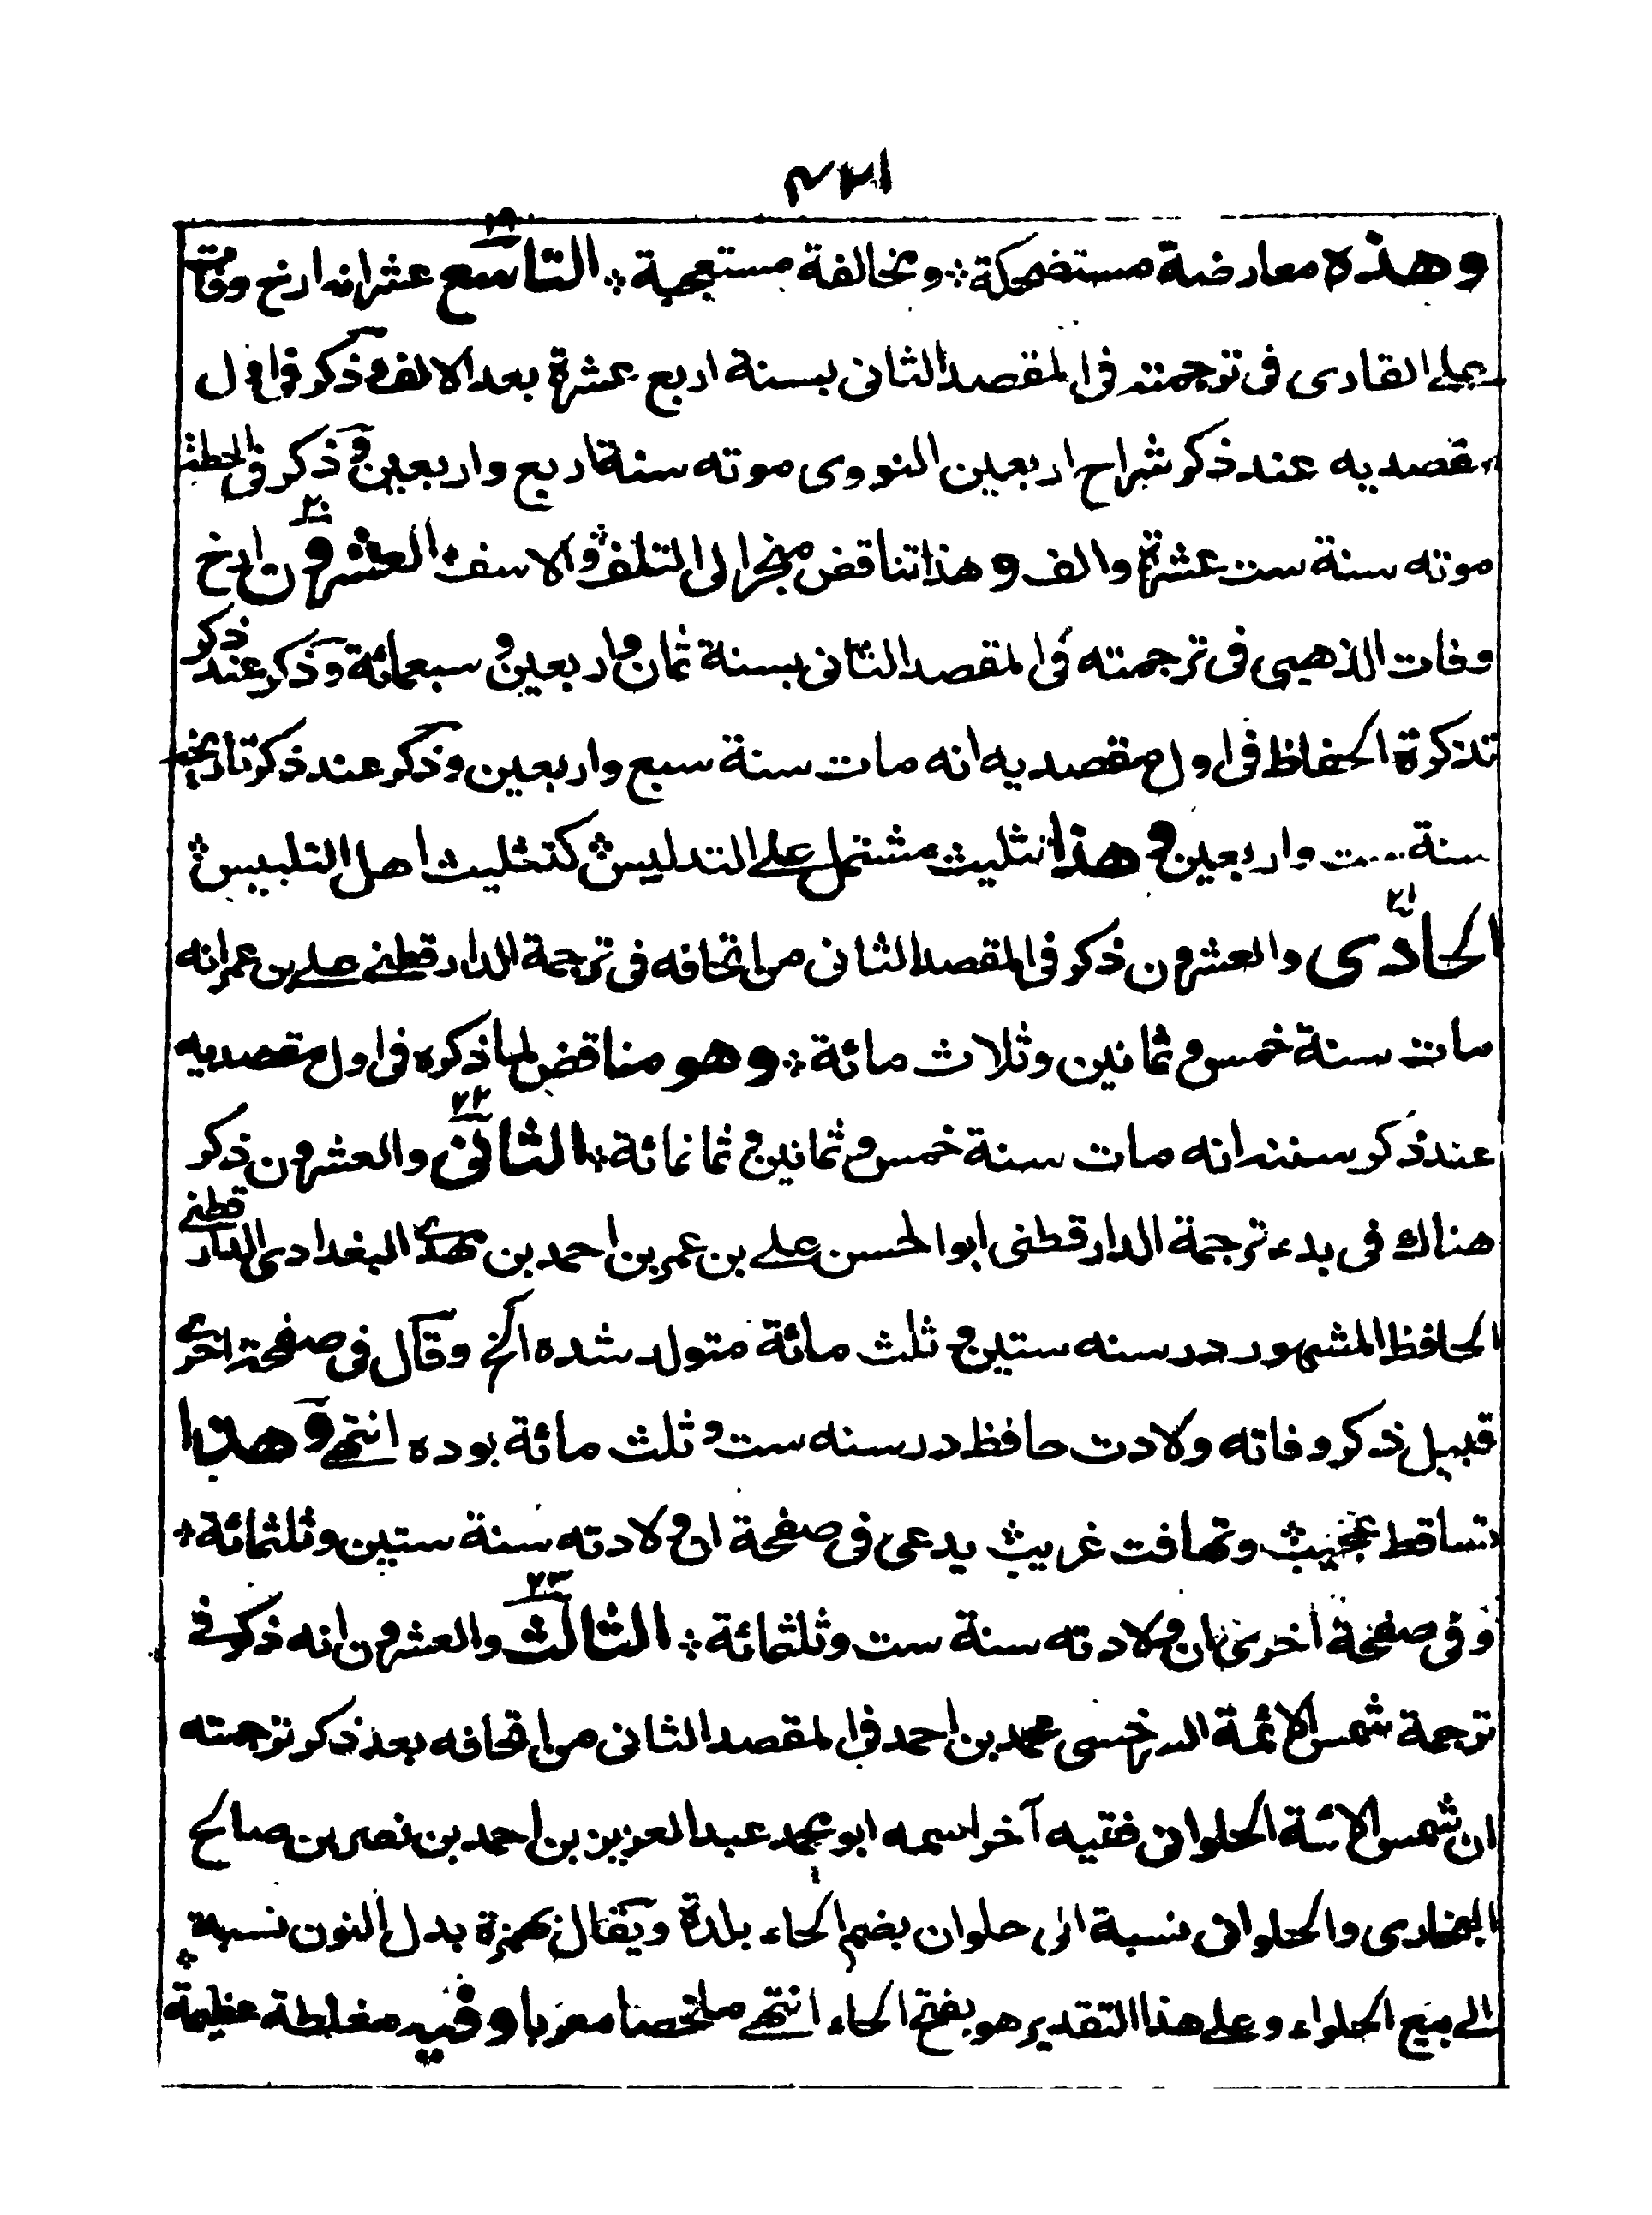 ١٢٣
١٩
وهذه معارضة مستضحكة * ومخالفة مستعجبة * التاسع عشر انه ارخ وفات
على القارى فى ترجمته فى المقصد الثانى بسنة اربع عشرة بعد الالف وذكر فى اول
مقصديه عند ذكر شراح اربعين النووى موته سنة اربع واربعين وذكر فى الحطة
٢٠
موته سنة ست عشرة والف وهذا تناقض منجر الى التلف * والاسف * العشرون ارخ
وفات الذهبى فى ترجمته فى المقصد الثانى بسنة ثمان واربعين وسبعمائة وذكر عند ذكر
تذكرة الحفاظ فى اول مقصديه انه مات سنة سبع واربعين وذكر عند ذكر تاريخه
سنة ست واربعين وهذا تثليث مشتمل على التدليس * كتثليث اهل التلبيس *
٢١
الحادى والعشرون ذكر فى المقصد الثانى من اتحافه فى ترجمة الدارقطنى على بن عمر انه
مات سنة خمس وثمانين وثلاث مائة * وهو مناقض لما ذكره فى اول مقصديه
٢٢
عند ذكر سننه انه مات سنة خمس وثمانين وثمانمائة * الثانى والعشرون ذكر
هناك فى بدء ترجمة الدارقطنى ابوالحسن على بن عمر بن احمد بن مهدى البغدادى الدارقطنى
الحافظ المشهور در سنه ستين و ثلث مائة متولد شده الخ وقال فى صفحة اخرى
قبيل ذكر وفاته ولادت حافظ در سنه ست و ثلث مائة بوده انتهى وهذا
تساقط عجيب * وتهافت غريب * يدعى فى صفحة ان ولادته سنة ستين وثلثمائة *
٢٣
وفى صفحة اخرى ان ولادته سنة ست وثلثمائة * الثالث والعشرون انه ذكر فى
ترجمة شمس الائمة السرخسى محمد بن احمد فى المقصد الثانى من اتحافه بعد ذكر ترجمته
ان شمس الائمة الحلوانى فقيه آخر اسمه ابو محمد عبد العزيز بن احمد بن نصر بن صالح
البخارى والحلوانى نسبة الى حلوان بضم الحاء بلدة ويقال بهمزة بدل النون نسبة *
الى بيع الحلواء وعلى هذا التقدير هو بفتح الحاء انتهى ملخصا معربا وفيه مغلطة عظيمة *